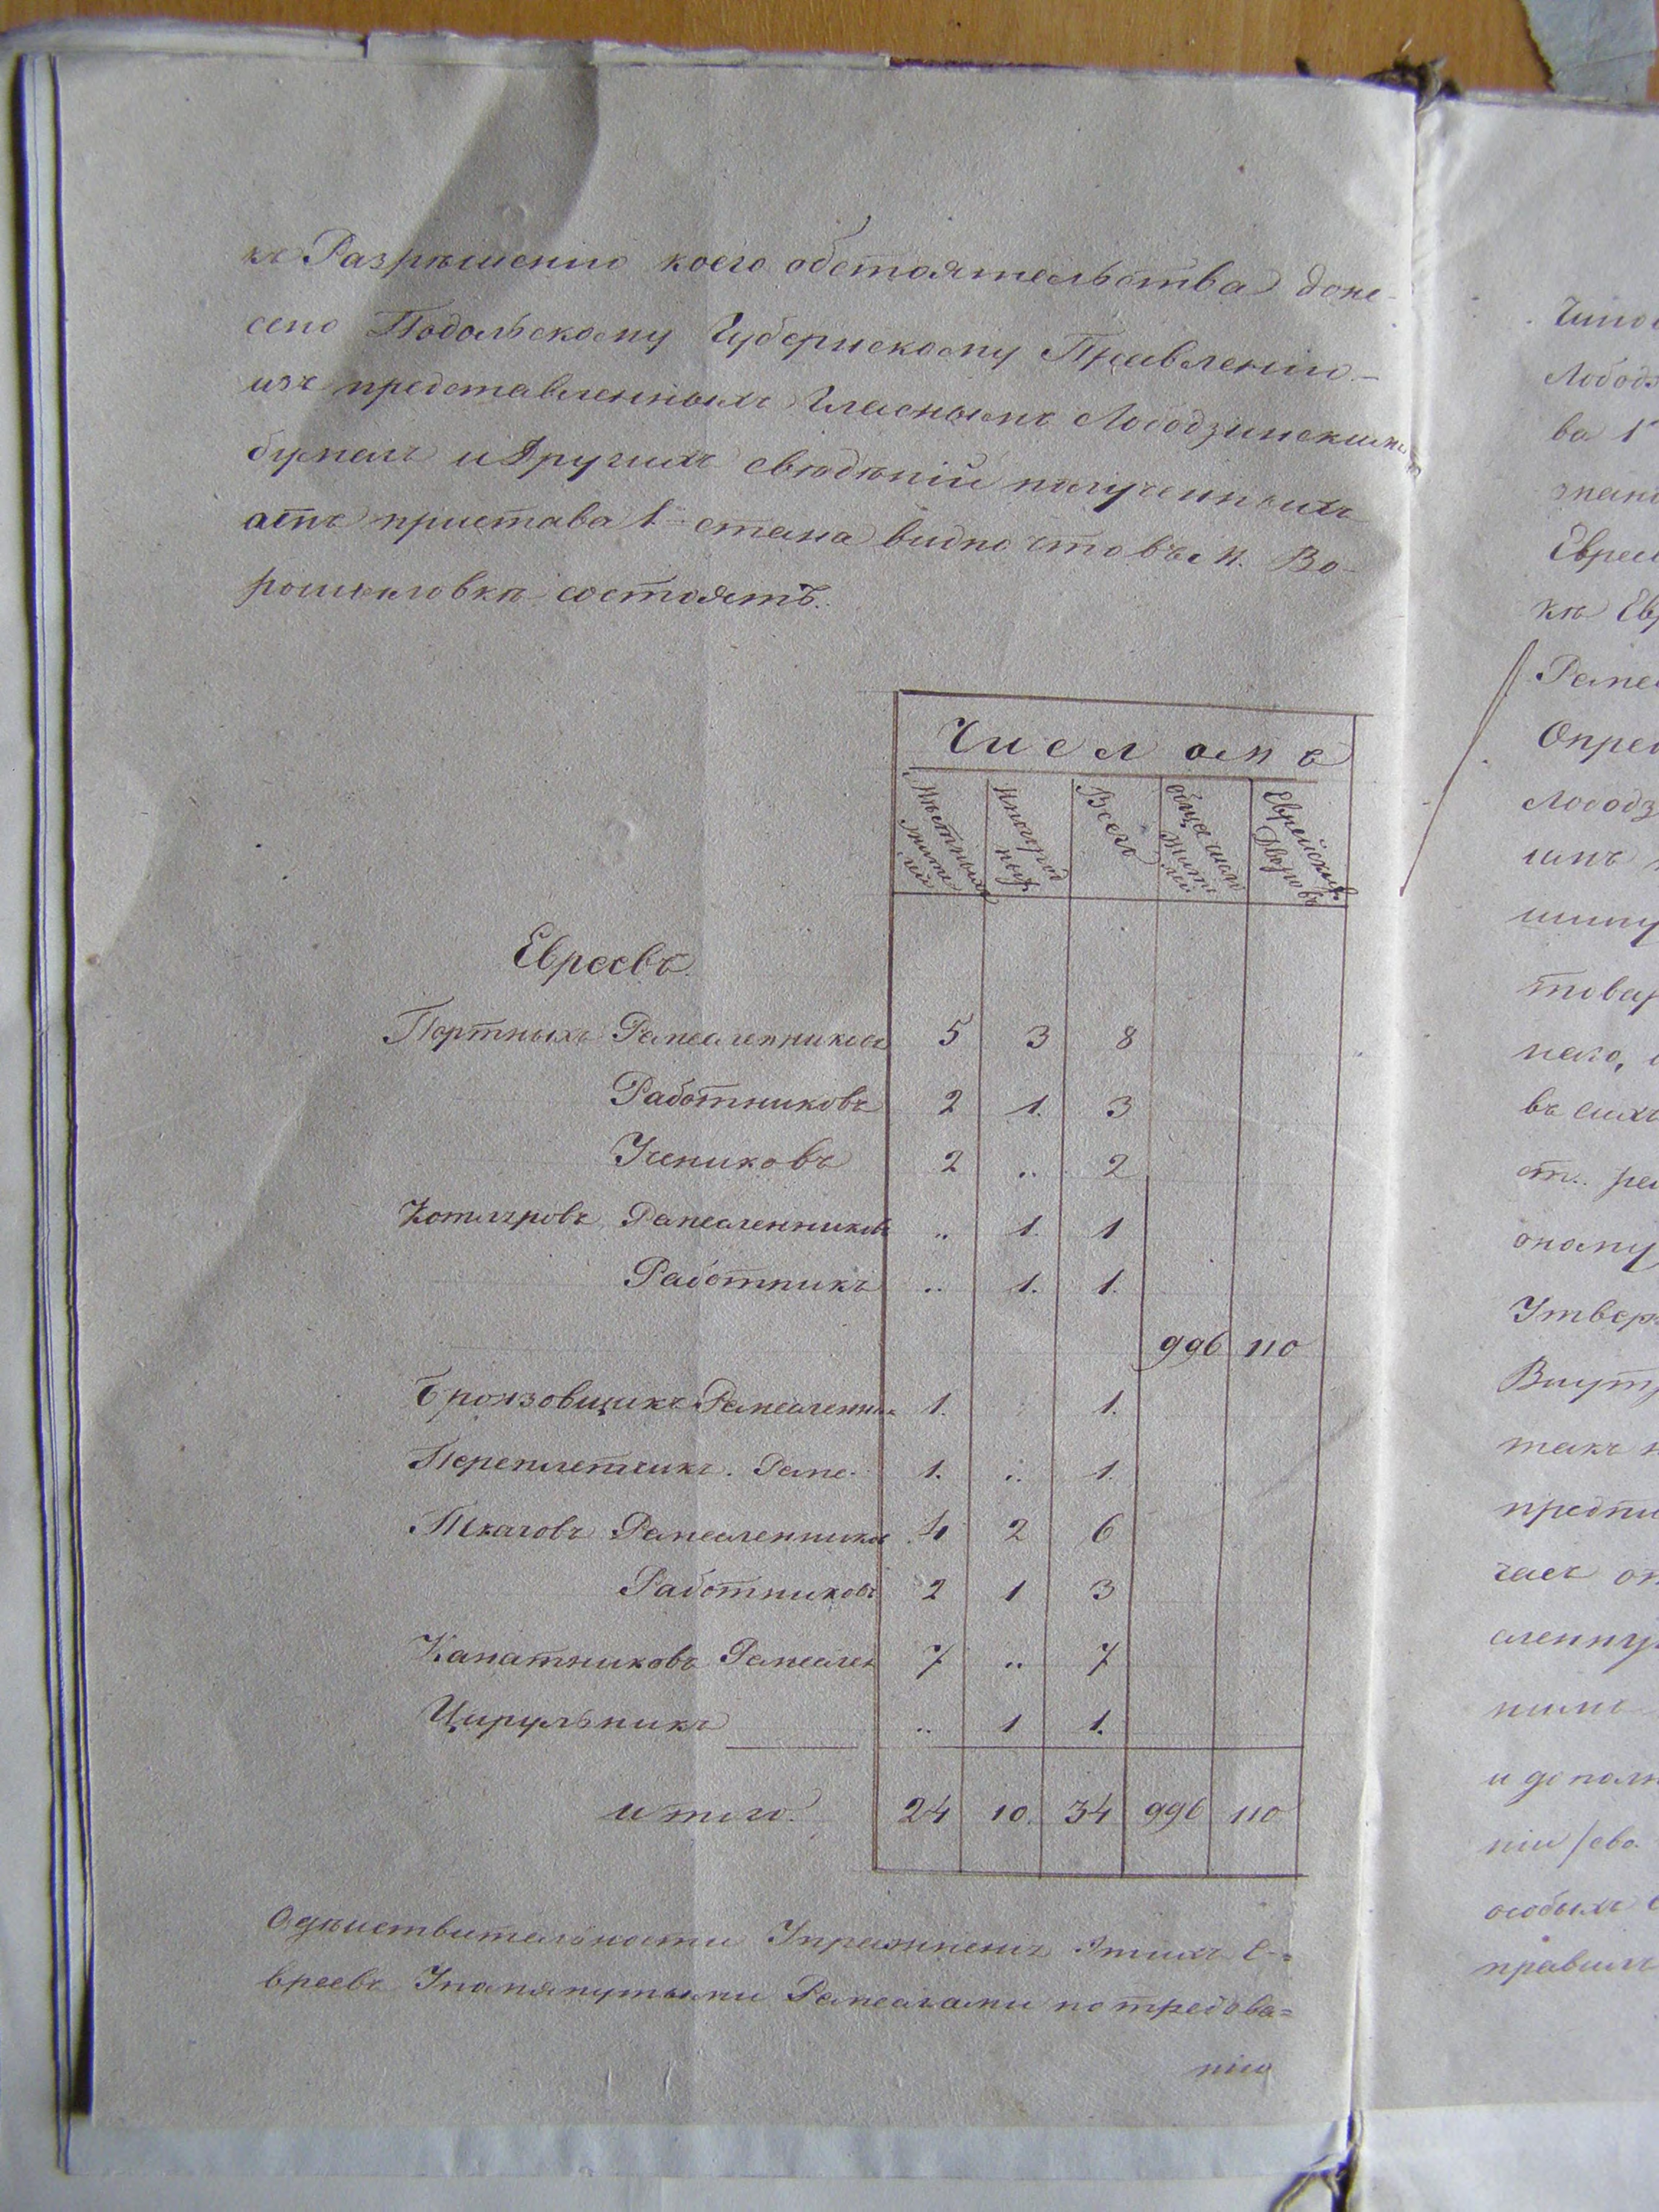 къ Разрѣшенію коего обстоятельства доне-
сено Подольскому Губернскому Правленію.—
изъ представленныхъ Гласнымъ Лободзинскимъ
бумагъ и Другихъ свѣдѣній полученныхъ
отъ пристава 1 стана видно что въ м. Во-
рошиловкѣ состоятъ.
Числомъ
Мѣстныхъ жителей
Иногородныхъ
Всего
Еврейскихъ Дворовъ
Евреевъ
Портныхъ Ремесленниковъ 5 3 8
Работниковъ 2 1. 3
Учениковъ 2 .. 2
Ремесленниковъ .. 1. 1
Работникъ .. 1. 1.
996 110
Бронзовщикъ Ремесленник 1. 1.
Переплетчикъ. Реме. 1. .. 1.
Ткачовъ Ремесленников 4 2 6
Работниковъ 2 1 3
Канатниковъ Ремеслен 7 .. 7
Цирульникъ .. 1 1.
итого. 24 10. 34 996 110
О дѣйствительности Упражненія этихъ Е-
вреевъ Упомянутыми Ремеслами по требова=
нію
Лободз
ва 1
Еврей
къ Евр
Ремес
Опред
Лободз
товар
него,
въ сихъ
оному
Утверж
Внутр
такъ
предпи
часъ
сленну
и дополн
особыхъ
правилъ